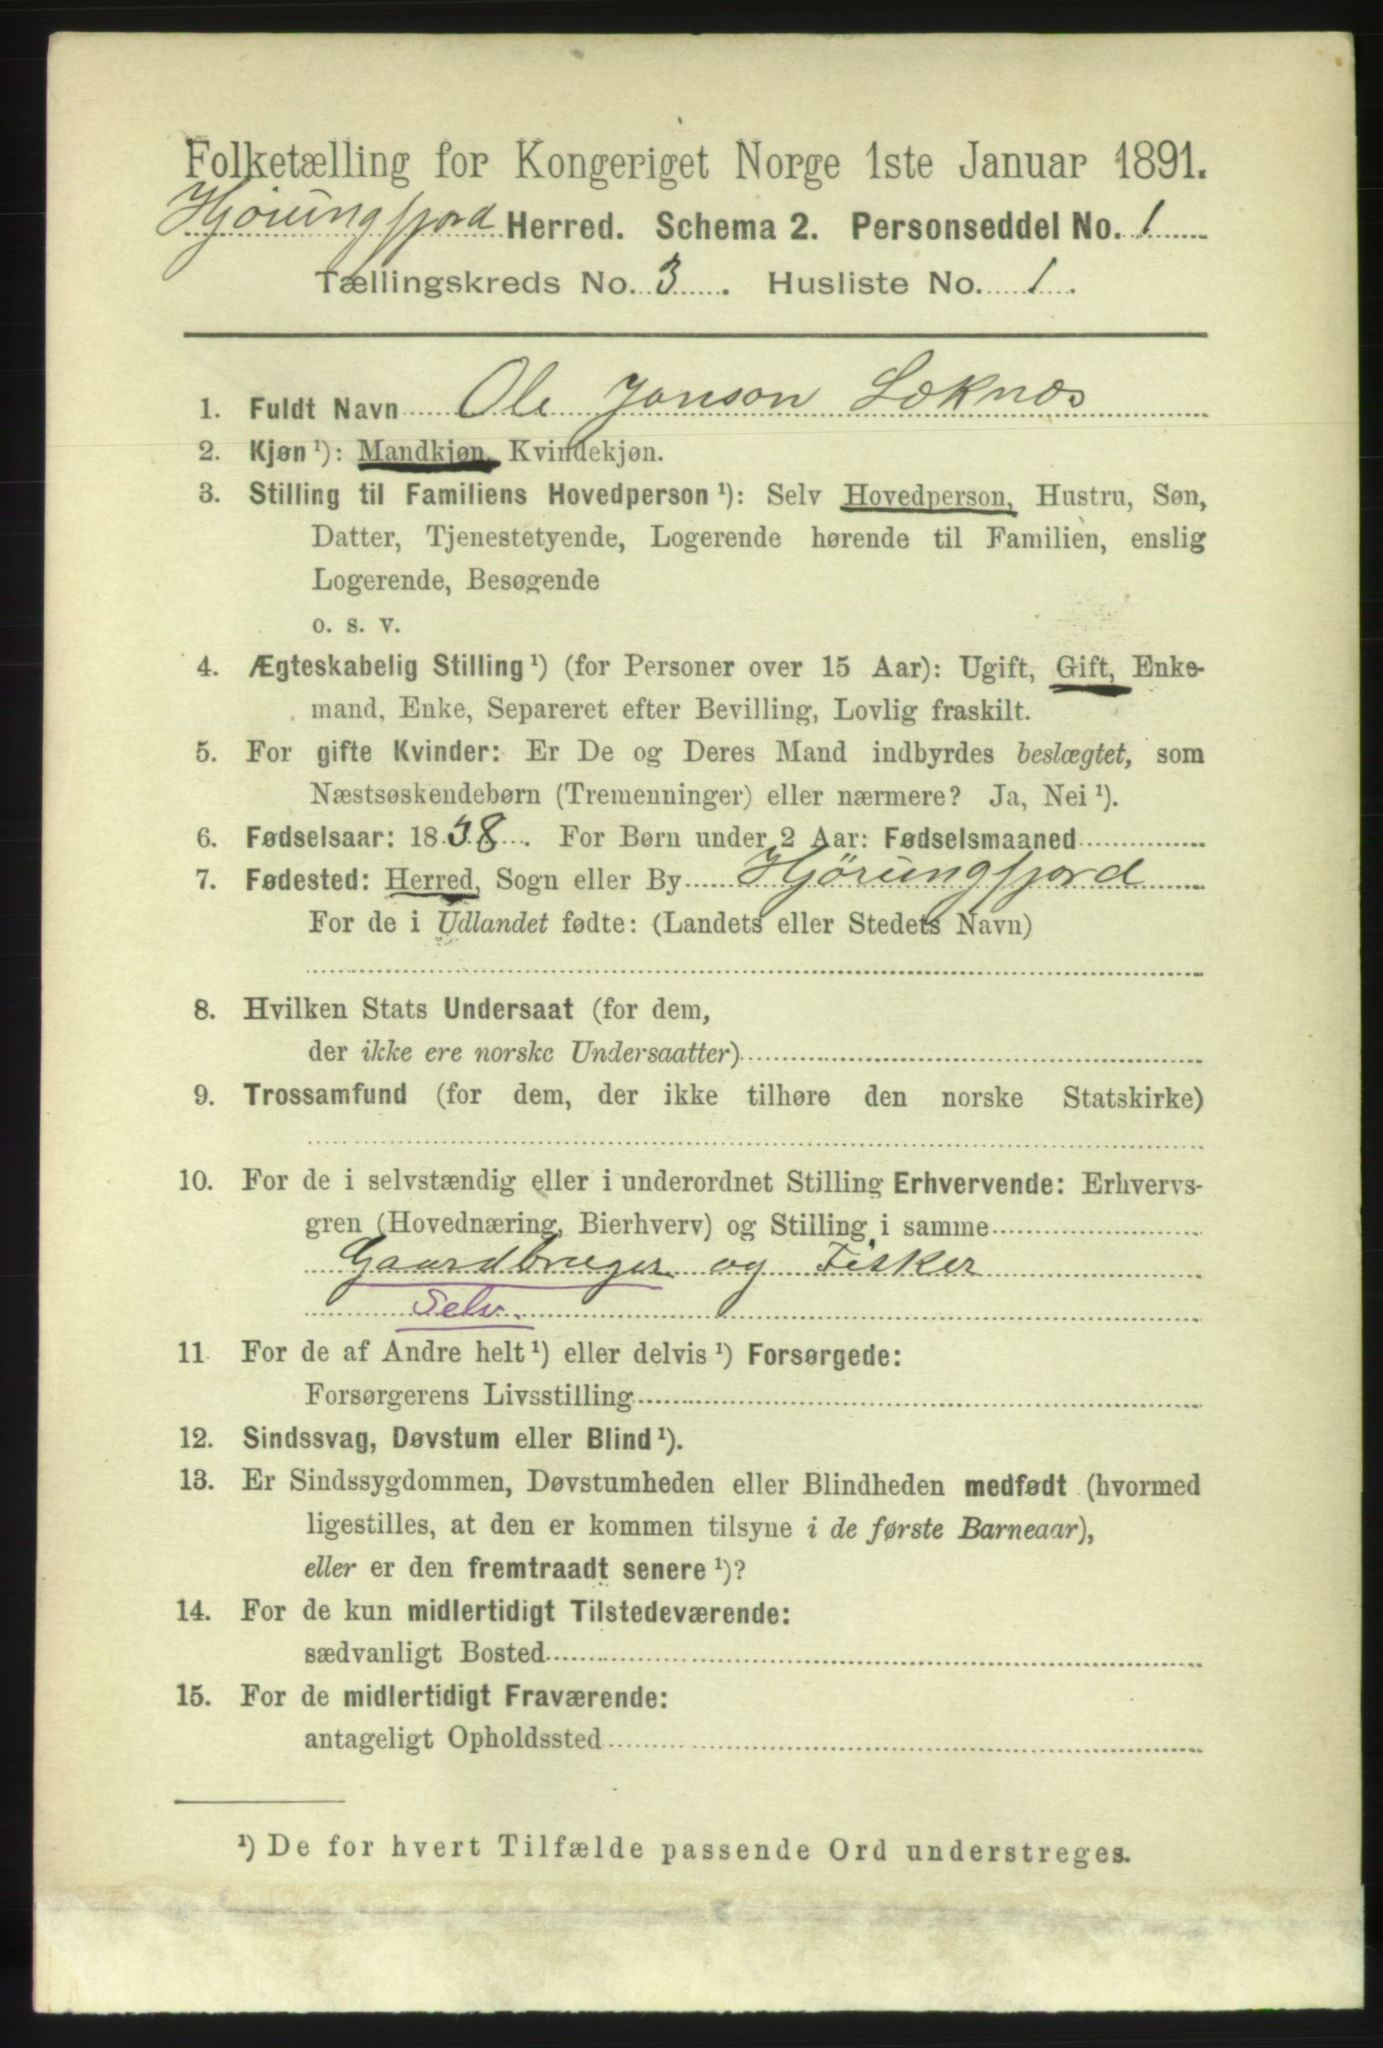 Folketælling for Kongeriget Norge 1ste Januar 1891.
Hjørungfjord Herred. Schema 2. Personseddel No. 1
Tællingskreds No. 3. Husliste No. 1.
1. Fuldt Navn Ole Janson Leknæs
2. Kjøn¹): Mandkjøn, Kvindekjøn.
3. Stilling til Familiens Hovedperson¹): Selv Hovedperson, Hustru, Søn,
Datter, Tjenestetyende, Logerende hørende til Familien, enslig
Logerende, Besøgende
o. s. v.
4. Ægteskabelig Stilling¹) (for Personer over 15 Aar): Ugift, Gift, Enke-
mand, Enke, Separeret efter Bevilling, Lovlig fraskilt.
5. For gifte Kvinder: Er De og Deres Mand indbyrdes beslægtet, som
Næstsøskendebørn (Tremenninger) eller nærmere? Ja, Nei¹).
6. Fødselsaar: 1838. For Børn under 2 Aar: Fødselsmaaned
7. Fødested: Herred, Sogn eller By Hjørungfjord
For de i Udlandet fødte: (Landets eller Stedets Navn)
8. Hvilken Stats Undersaat (for dem,
der ikke ere norske Undersaatter)
9. Trossamfund (for dem, der ikke tilhøre den norske Statskirke)
10. For de i selvstændig eller i underordnet Stilling Erhvervende: Erhvervs-
gren (Hovednæring, Bierhverv) og Stilling i samme
Gaardbruger og Fisker
Selv.
11 For de af Andre helt¹) eller delvis¹) Forsørgede:
Forsørgerens Livsstilling
12. Sindssvag, Døvstum eller Blind¹).
13. Er Sindssygdommen, Døvstumheden eller Blindheden medfødt (hvormed
ligestilles, at den er kommen tilsyne i de første Barneaar),
eller er den fremtraadt senere¹)?
14. For de kun midlertidigt Tilstedeværende:
sædvanligt Bosted
15. For de midlertidigt Fraværende:
antageligt Opholdssted
¹) De for hvert Tilfælde passende Ord understreges.